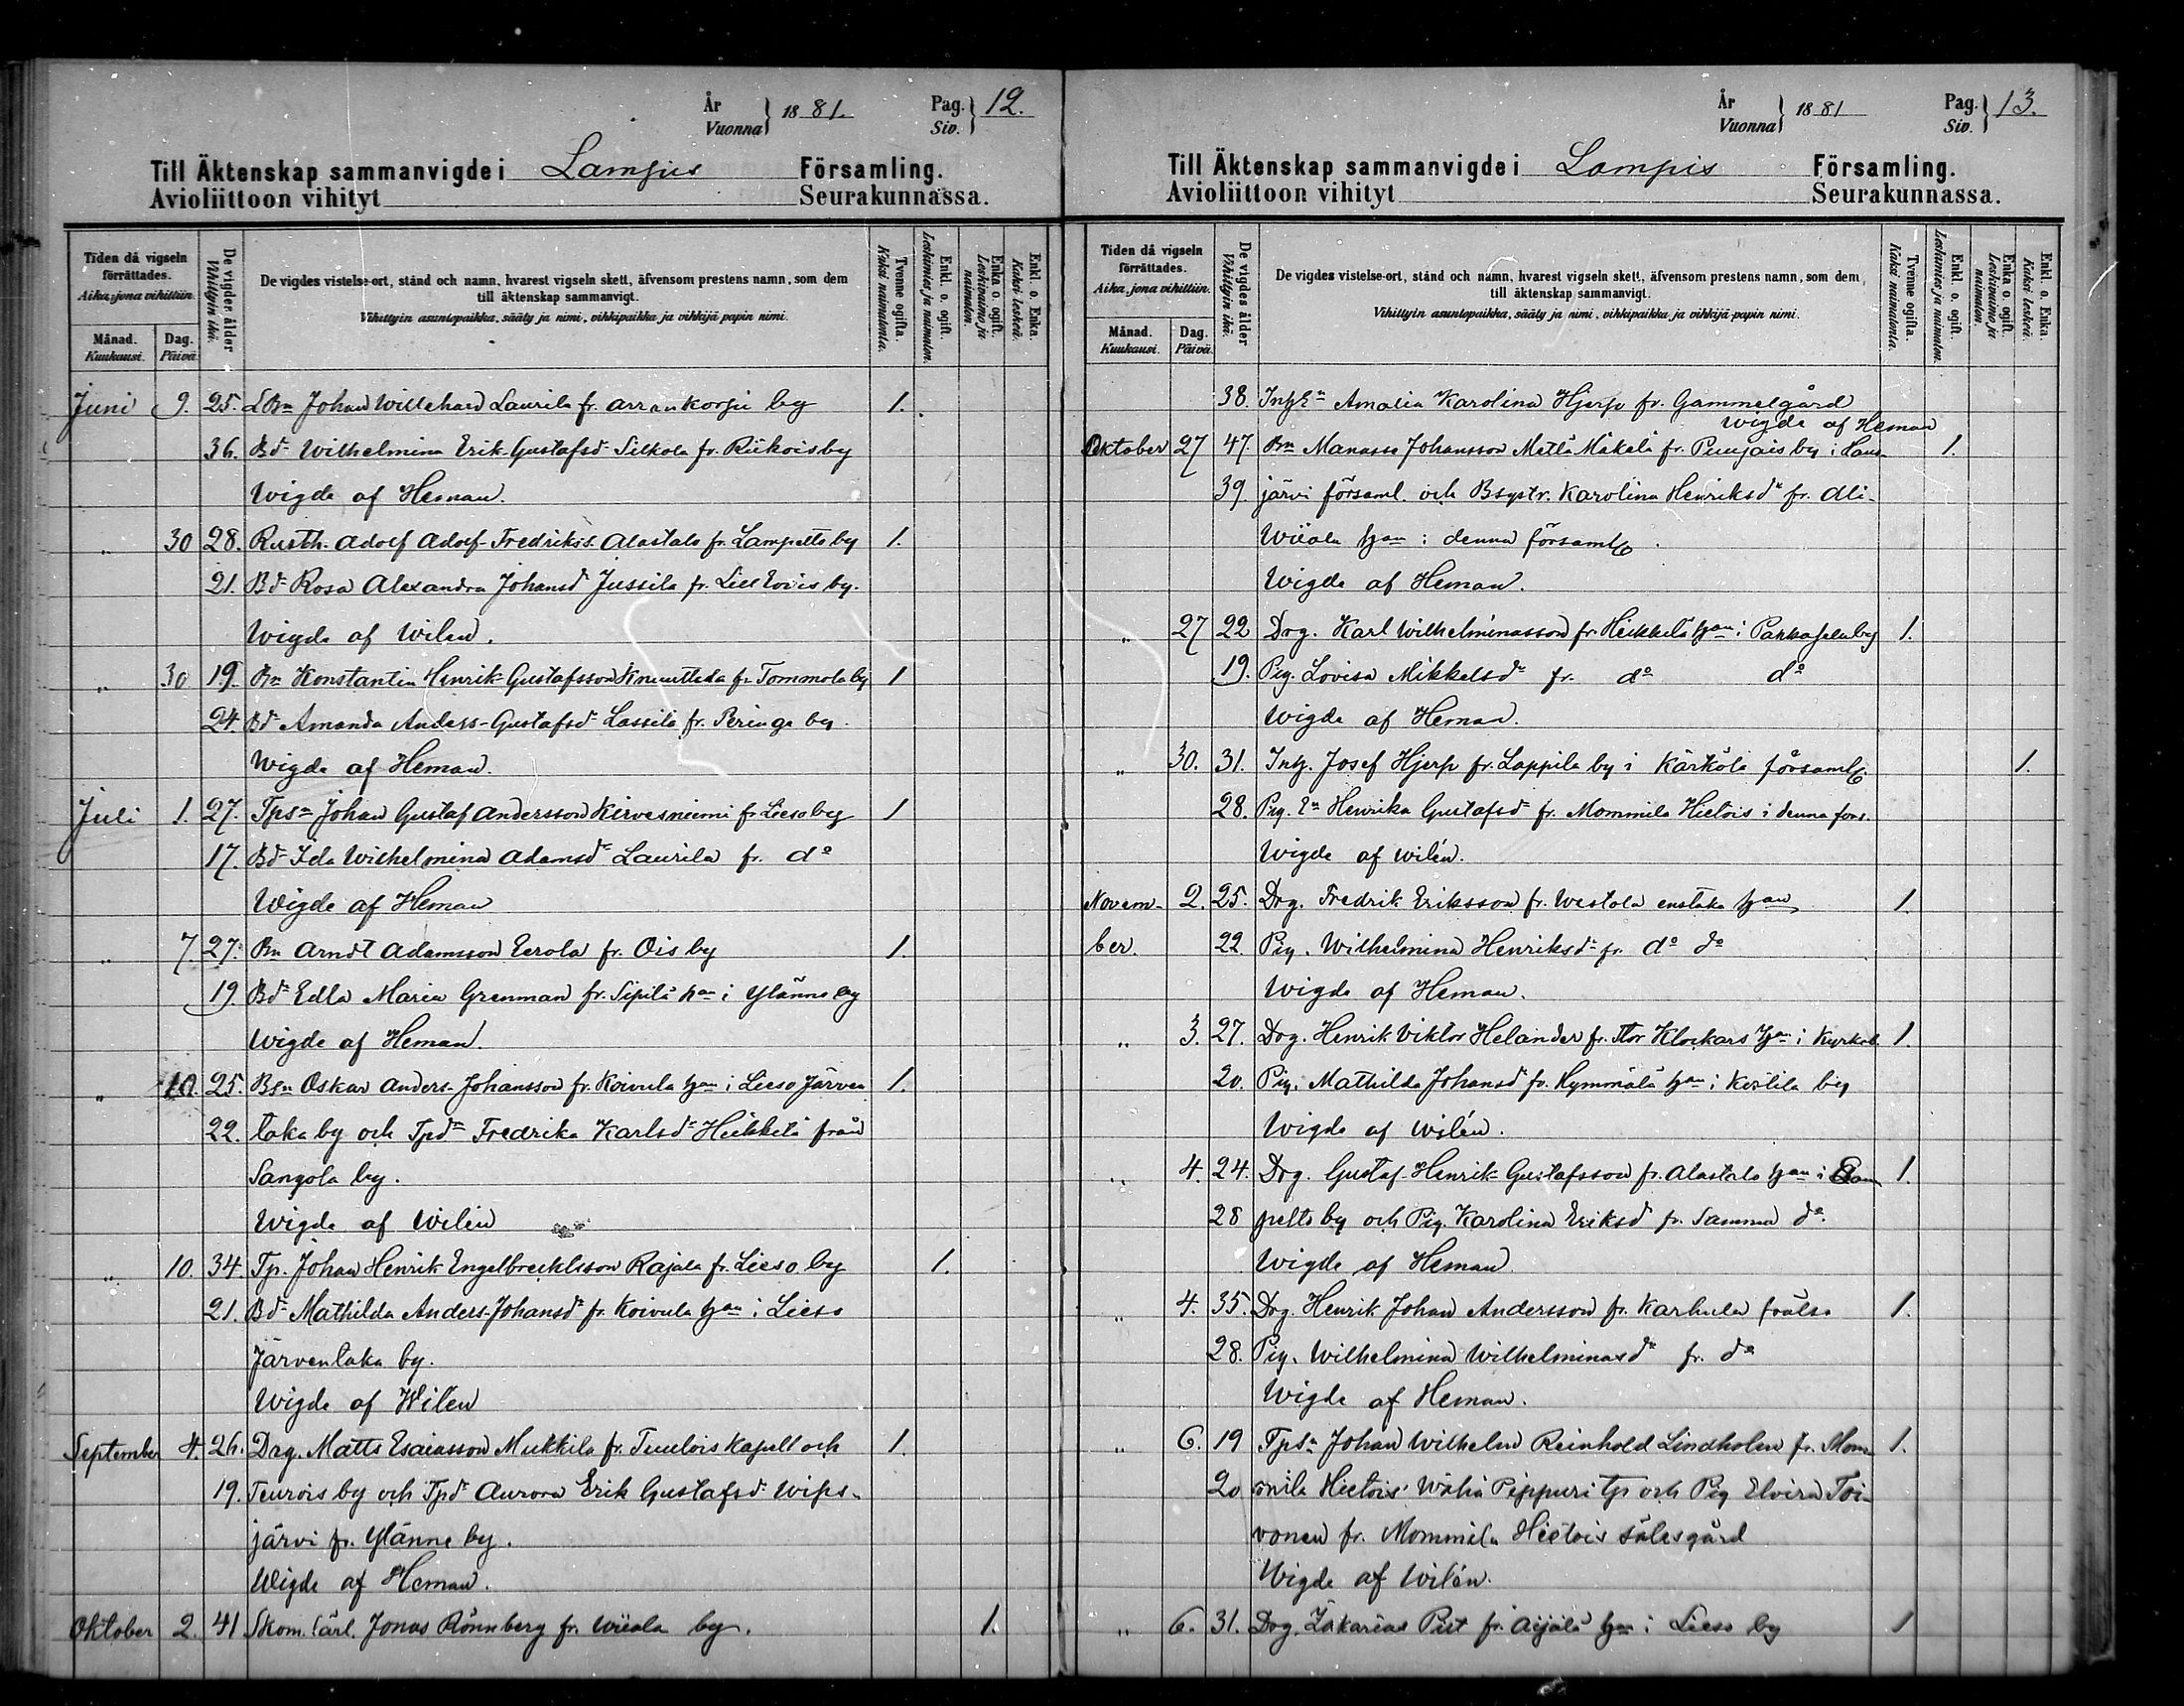 År
Vuonna } 1881. Pag.
Siv. } 12.
Till Äktenskap sammanvigde i Lampis Församling.
Avioliittoon vihityt Seurakunnassa.
Tiden då vigseln förrättades.
Aika, jona vihittiin.
Månad.
Kuukausi.
Dag.
Päivä.
De vigdes ålder
Vihittyin ikä.
De vigdes vistelse-ort, stånd och namn, hvarest vigseln skett, äfvensom prestens namn, som dem
till äktenskap sammanvigt.
Vihittyin asuntopaikka, sääty ja nimi, vihkipaikka ja vihkijä papin nimi.
Tvenne ogifta.
Kaksi naimatonta.
Enkl. o. ogift.
Leskimies ja naimaton.
Enka o. ogift.
Leskivaimo ja naimaton.
Enkl. o. Enka.
Kaksi leskeä.
Juni 9. 25. LBn Johan Willehard Laurila fr. Arrankorpi by 1.
36. Bdr Wilhelmina Erik-Gustafsdr Silkola fr. Riikois by
Wigde af Heman.
" 30 28. Rusth. Adolf Adolf-Fredrikss. Alastalo fr. Lampelto by 1.
21. Bdr Rosa Alexandra Johansdr Jussila fr. Lill Evois by.
Wigde af Wilén.
" 30 19. Bn Konstantin Henrik-Gustafsson Knuuttila fr. Tommola by 1
24. Bdr Amanda Anders-Gustafsdr Lassila fr. Peringa by.
Wigde af Heman.
Juli 1. 27. Tpsn Johan Gustaf Andersson Kirvesniemi fr. Lieso by 1
17. Bdr Ida Wilhelmina Adamsdr Laurila fr. do
Wigde af Heman
" 7 27. Bn Arndt Adamsson Eerola fr. Ois by 1.
19 Bdr Edla Maria Grenman fr. Sipilä hn i Ylänne by
Wigde af Heman.
" 10. 25. Bsn Oskar Anders-Johansson fr. Koivula hman i Lieso Järven 1.
22. taka by och Tpdr Fredrika Karlsdr Heikkilä från
Sangola by.
Wigde af Wilén
" 10. 34. Tp. Johan Henrik Engelbrecktsson Rajala fr. Lieso by 1.
21. Bdr Mathilda Anders-Johansdr fr. Koivula hman i Lieso
Järventaka by.
Wigde af Wilén
September 4. 26. Drg. Matts Esaiasson Mukkila fr. Tuulois Kapell och 1.
19. Teurois by och Tpdr Aurora Erik Gustafsdr Wips-
järvi fr. Ylänne by.
Wigde af Heman.
Oktober 2. 41 Skom. lärl. Jonas Rönnberg fr. Wiiala by. 1.
År
Vuonna } 1881 Pag.
Siv. } 13.
Till Äktenskap sammanvigde i Lampis Församling.
Avioliittoon vihityt Seurakunnassa.
Tiden då vigseln förrättades.
Aika, jona vihittiin.
Månad.
Kuukausi.
Dag.
Päivä.
De vigdes ålder
Vihittyin ikä.
De vigdes vistelse-ort, stånd och namn, hvarest vigseln skett, äfvensom prestens namn, som dem
till äktenskap sammanvigt.
Vihittyin asuntopaikka, sääty ja nimi, vihkipaikka ja vihkijä-papin nimi.
Tvenne ogifta.
Kaksi naimatonta.
Enkl. o. ogift.
Leskimies ja naimaton.
Enka o. ogift.
Leskivaimo ja naimaton.
Enkl. o. Enka.
Kaksi leskeä.
38. InhEn Amalia Karolina Hjerp fr. Gammelgård
Wigde af Heman
Oktober 27 47. Bn Manasse Johansson Mattä Mäkelä fr. Puujais by i Jans- 1.
39. järvi församl. och Bsystr. Karolina Henriksdr fr. Ali-
Wiiala hman i denna församl.
Wigde af Heman.
" 27 22 Drg. Karl Wilhelminasson fr. Heikkilä hman i Parkajela by 1.
19. Pig. Lovisa Mikkelsdr fr. do do
Wigde af Heman.
" 30. 31. Inh. Josef Hjerp fr. Lappila by i Kärkölä församl. 1.
28. Pig. En Henrika Gustafsdr fr. Mommila Hietois i denna förs.
Wigde af Wilén.
Novem- 2. 25. Drg. Fredrik Eriksson fr. Westola enstaka hman 1.
ber. 22. Pig. Wilhelmina Henriksdr fr. do do
Wigde af Heman.
" 3. 27. Drg. Henrik Viktor Helander fr. Stor Klockars hman i Kyrkob. 1.
20. Pig. Mathilda Johansdr fr. Hymmälä hman i Kostila by
Wigde af Wilén.
" 4. 24. Drg. Gustaf-Henrik-Gustafsson fr. Alastalo hman i Lam 1.
28 pelto by och Pig. Karolina Eriksdr fr. Samma do.
Wigde af Heman
" 4. 35. Drg. Henrik Johan Andersson fr. Karhula frälse 1.
28. Pig. Wilhelmina Wilhelminasdr fr. do
Wigde af Heman.
" 6. 19 Tpsn Johan Wilhelm Reinhold Lindholm fr. Mom- 1.
20 mila Hietois Wähä Pippuri tp och Pig Elvira Toi-
vonen fr. Mommila Hietois sätesgård
Wigde af Wilén.
" 6. 31. Drg. Zakarias Pist fr. Äijälä hman i Lieso by 1